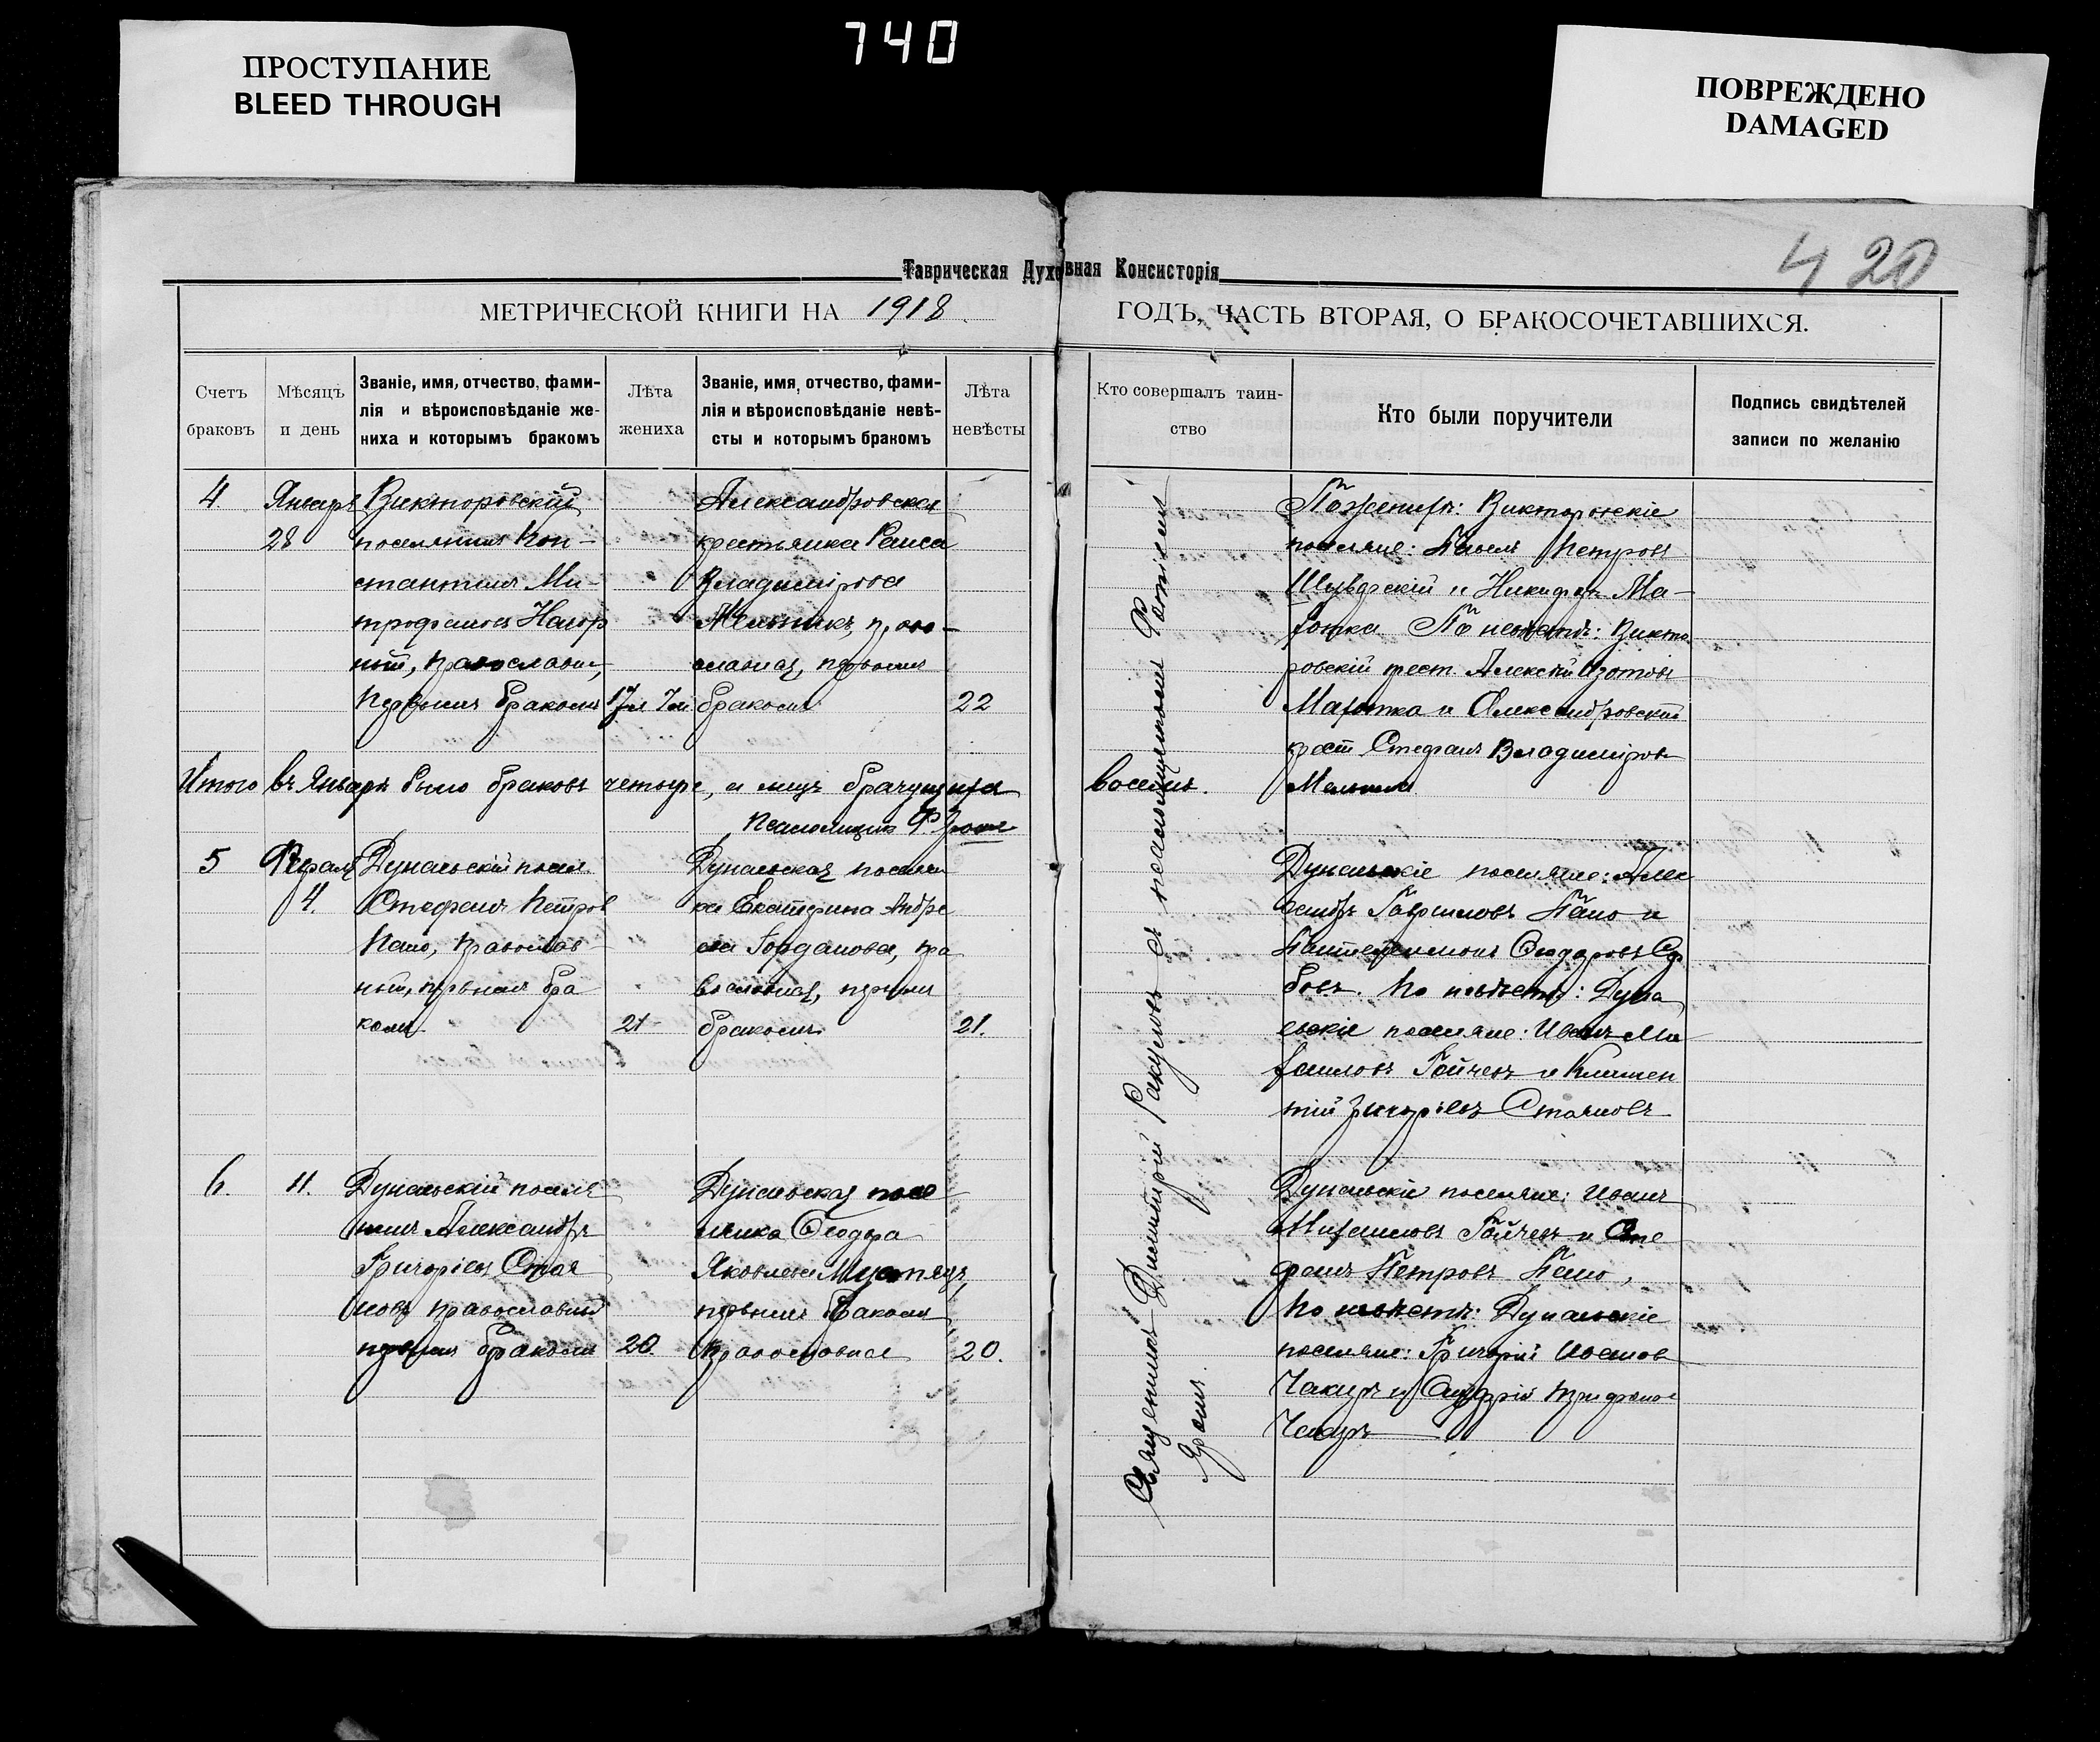 ПРОСТУПАНИЕ
BLEED THROUGH
740
ПОВРЕЖДЕНО
DAMAGED
420
Таврическая Духовная Консисторія
МЕТРИЧЕСКОЙ КНИГИ НА 1918 ГОДЪ, ЧАСТЬ ВТОРАЯ, О БРАКОСОЧЕТАВШИХСЯ.
Счетъ браковъ
Мѣсяцъ и день
Званіе, имя, отчество, фами-
лія и вѣроисповѣданіе же-
ниха и которымъ бракомъ
Лѣта жениха
Званіе, имя, отчество, фами-
лія и вѣроисповѣданіе невѣ-
сты и которымъ бракомъ
Лѣта невѣсты
Кто совершалъ таин-
ство
Кто были поручители
Подпись свидѣтелей
записи по желанію
4
Январь
28
Викторовскій
поселянинъ Кон-
стантинъ Ми-
трофановъ
православн,
первымъ бракомъ
Александровская
крестьянка Раиса
Владимірова
Мельникъ, право-
славная, первымъ
бракомъ
22
По женихѣ: Викторовскіе
поселяне: Павелъ Петровъ
и Никифоръ Ма-
По невѣстѣ: Викто
ровскій крест. Алексѣй Изотовъ
и Александровскій
крест. Стефанъ Владиміровъ
Мельникъ
Итого въ Январѣ было браковъ четыре, а лицъ брачущихся восемь.
Псаломщикъ
5
Февраль
4.
Дунаевскій посел.
Стефанъ Петров
Пано, православ
ный, первымъ бра
комъ
21
Дунаевская поселян
ка Екатерина Андре
ева Горданова, пра
вославная, первымъ
бракомъ
21.
Дунаевскіе поселяне: Алек
сандръ Гавриловъ Пано и
Пантелеимонъ Ѳеодоровъ
бовъ. По невѣстѣ: Дуна
евскіе поселяне: Иванъ Ми
хаиловъ Гайчевъ и Климен
тій Григорьевъ Стояновъ
6.
11.
Дунаевскій поселя
нинъ Александръ
Григоріевъ Стоя
новъ православный
первымъ бракомъ
20.
Дунаевская посе
лянка Ѳеодора
Яковлева
первымъ бракомъ
православная
20.
Дунаевскіе поселяне: Иванъ
Михаиловъ Гайчевъ и Сте
фанъ Петровъ Пано,
По невѣстѣ: Дунаевскіе
поселяне: Григорій Иванов
Чакиръ и
Чакиръ
Священникъ Димитрій Ракуловъ съ псаломщикомъ